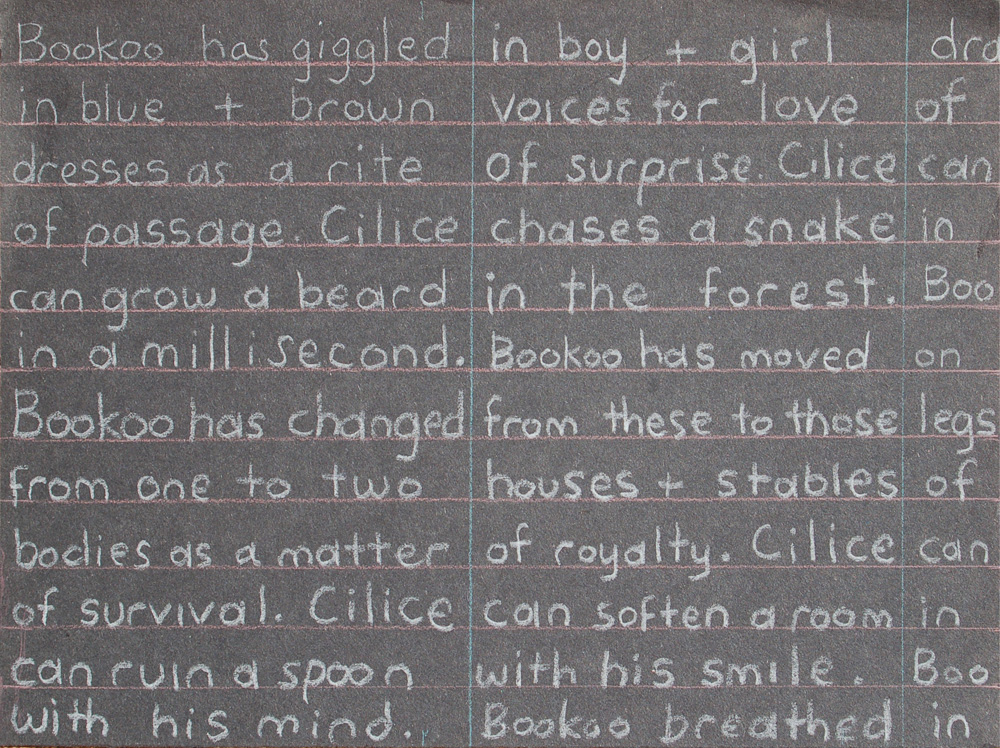 Bookoo has giggled
in blue + brown
dresses as a rite
of passage. Cilice
can grow a beard
in a millisecond.
Bookoo has changed
from one to two
bodies as a matter
of survival. Cilice
can ruin a spoon
with his mind.
in boy + girl
voices for love
of surprise. Cilice
chases a snake
in the forest.
Bookoo has moved
from these to those
houses + stables
of royalty. Cilice
can soften a room
with his smile.
Bookoo breathed
of
can
in
Boo
on
legs
of
can
in
Boo
in